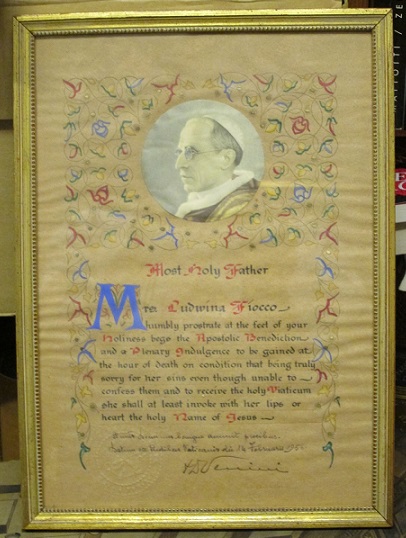 Most Holy Father
Mrs Ludwina Fiocco
humbly prostrate at the feet of your
Holiness begs the Apostolic Benediction
and a Plenary Indulgence to be gained at
the hour of death on condition that being truly
sorry for her sins even though unable to
confess them and to receive the holy Viaticum
she shall at least invoke with her lips or
heart the holy Name of Jesus